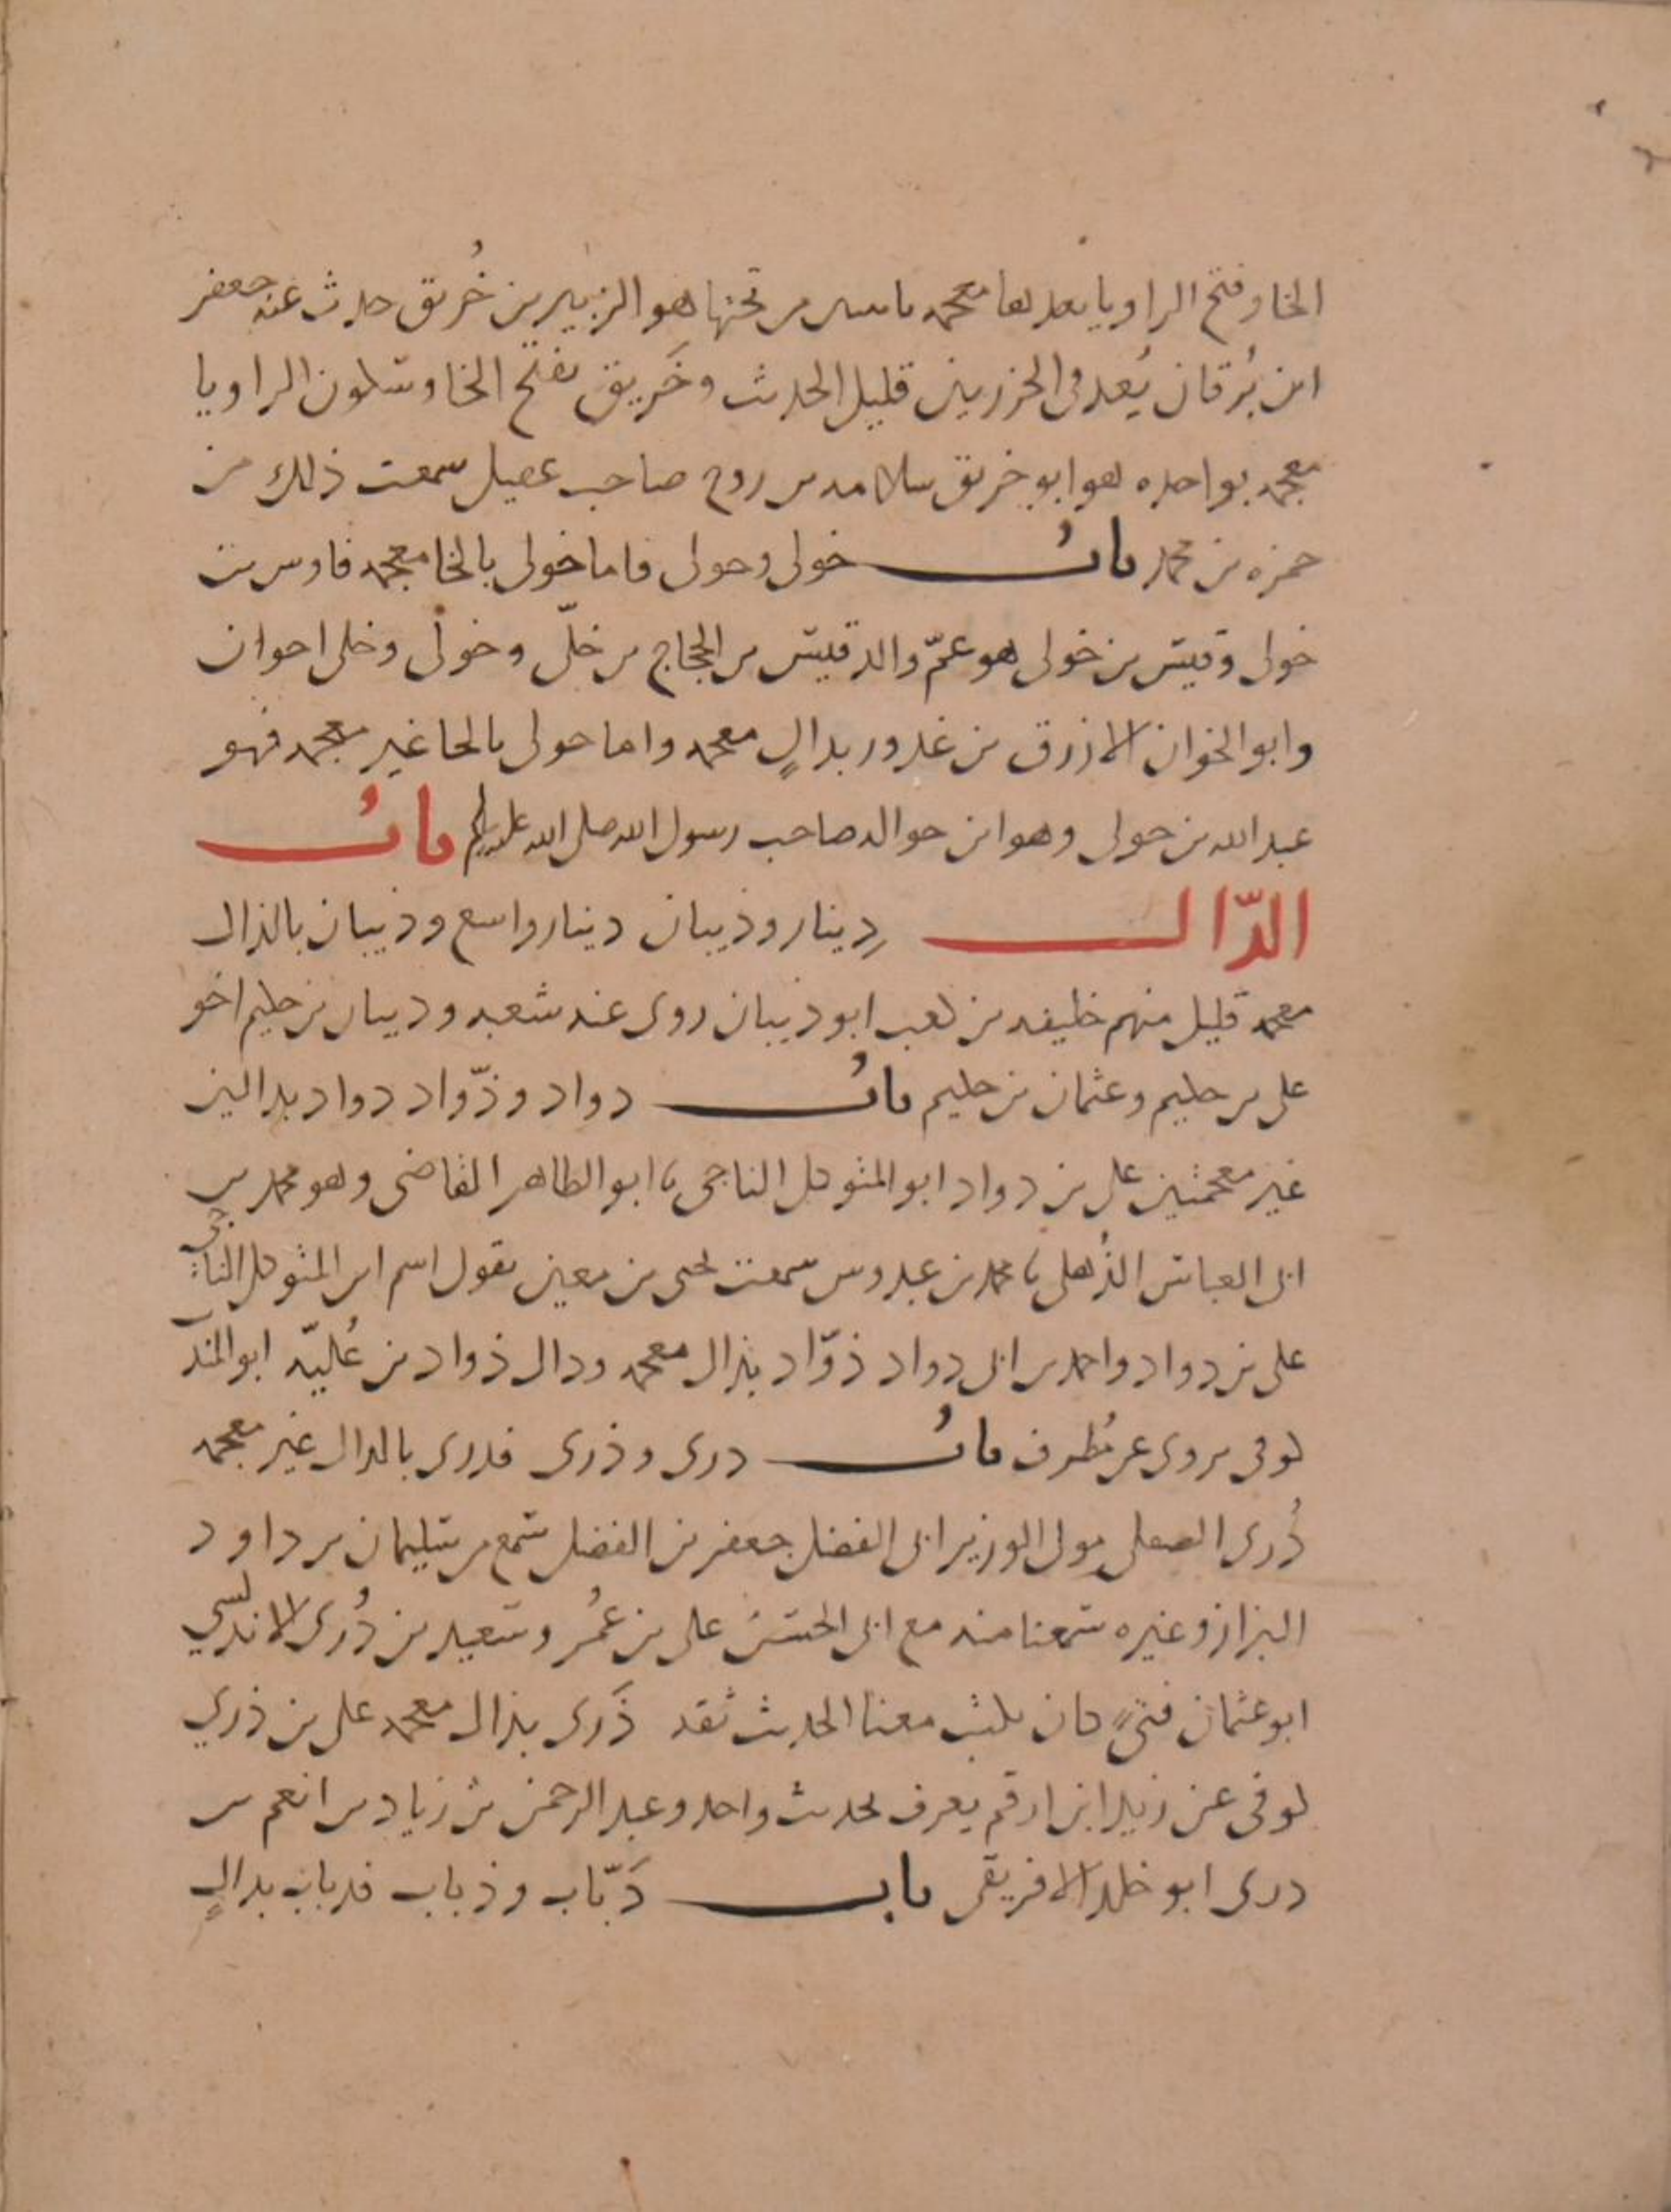 الخا وفتح الرا ويا بعدها معجمه باسس من تحتها هو الزبير بن خُريق حدث عنه جعفر
ابن بُرقان يُعد في الجزريين قليل الحديث وخَريق بفتح الخا وسكون الرا ويا
معجمه بواحده هو ابو خريق سلامه بن روح صاحب عقيل سمعت ذلك من
حمزه بن محمد بابُ خولي وحولي فاما خولي بالخا معجمه فاوس بن
خولى وقيس بن خولى هو عمّ والد قيس بن الحجاج بن خليّ وخولى وخلى اخوان
وابو الخوان الازرق بن عذور بذالٍ معجمه واما حولى بالحا غير معجمه فهو
عبد الله بن حولى وهو ابن حواله صاحب رسول الله صلى الله عليه وسلم بابُ
الدّال دينار وذيبان دينار واسع وذيبان بالذال
معجمه قليل منهم خليفه بن كعب ابو ذيبان روى عنه شعبه وديبان بن حكيم اخو
على بن حكيم وعثمان بن حكيم بابُ دواد وذوّاد دواد بدالين
غير معجمتين على بن دواد ابو المتوكل الناجى نا ابو الطاهر القاضى وهو محمد بن
ابى العباس الذُهلى نا محمد بن عبدوس سمعت يحى بن معين يقول اسم ابى المتوكل الناجى
على بن دواد واحمد بن ابى دواد ذوّاد بذال معجمه ودال ذواد بن عُليّه ابو المنذر
كوفى يروى عن مُطرف بابُ درى وذرى فدرى بالدال غير معجمه
دُرى الصعلى مولى الوزير ابى الفضل جعفر بن الفضل سمع من سليمان بن داود
البزاز وغيره سمعنا منه مع ابى الحسن على بن عُمر وسعيد بن دُرى الاندلسي
ابو عثمان فتىً كان يكتب معنا الحديث ثقه ذَرى بذال معجمه على بن ذري
كوفى عن زيد ابن ارقم يعرف بحديث واحد وعبد الرحمن بن زياد بن انعم بن
درى ابو خلد الافريقى باب دَبّاب وذباب فدباب بدالٍ